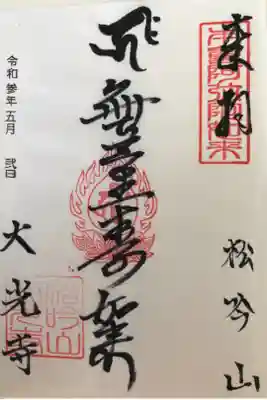 奉拝
松吟山
無量寿如来
令和参年五月 弐日
大光寺